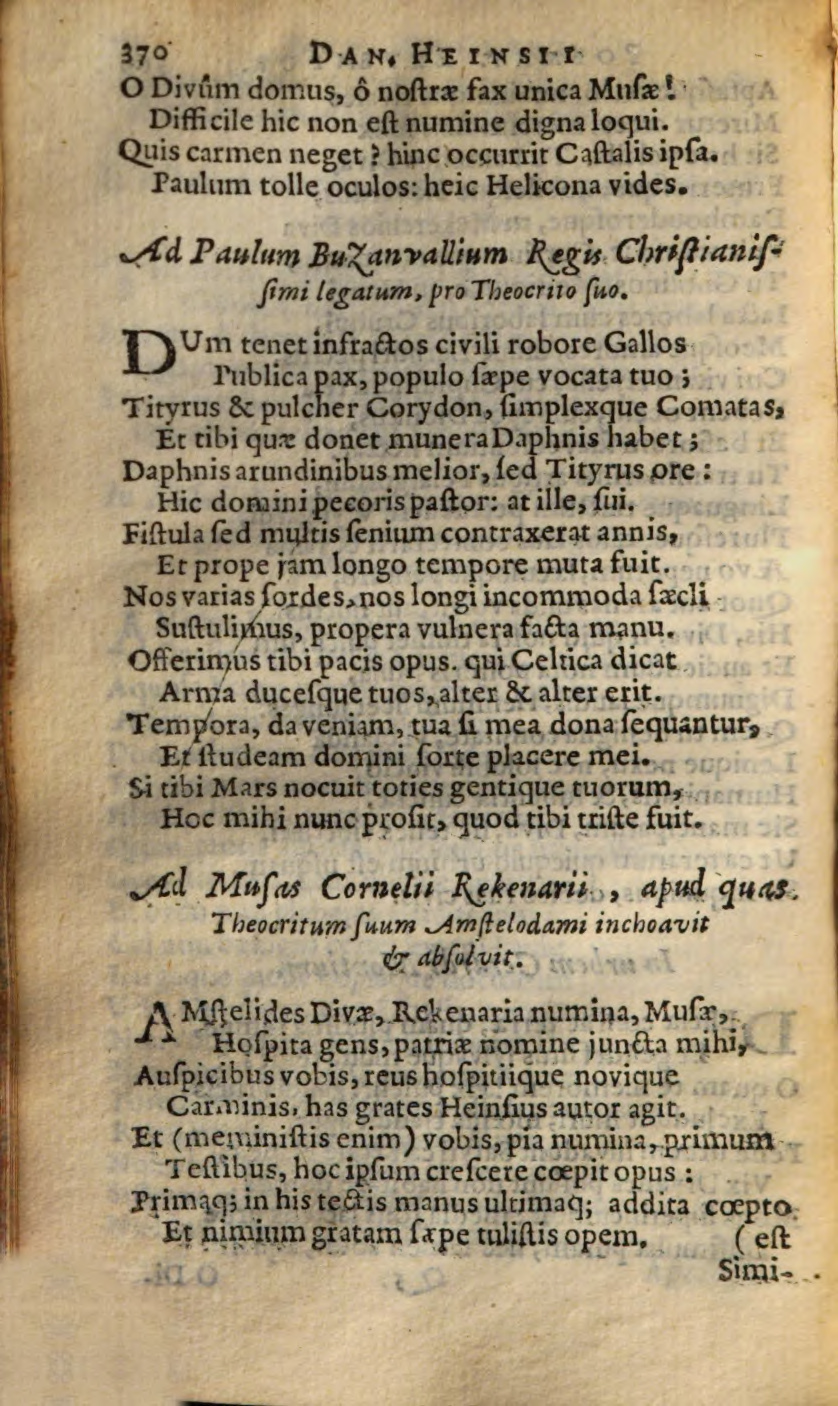 370 DAN. HEINSII
O Divûm domus, ô noſtræ fax unica Muſæ!
Difficile hic non eſt numine digna loqui.
Quis carmen neget? hinc occurrit Caſtalis ipſa.
Paulum tolle oculos: heic Helicona vides.
Ad Paulum BuZanvallium Regis Chriſtianiſ-
ſimi legatum, pro Theocrito ſuo.
DUm tenet infractos civili robore Gallos
Publica pax, populo ſæpe vocata tuo;
Tityrus & pulcher Corydon, ſimplexque Comatas,
Et tibi quæ donet munera Daphnis habet;
Daphnis arundinibus melior, ſed Tityrus ore:
Hic domini pecoris paſtor: at ille, ſui.
Fiſtula ſed multis ſenium contraxerat annis,
Et prope jam longo tempore muta fuit.
Nos varias ſordes, nos longi incommoda ſæcli
Suſtulimus, propera vulnera facta manu.
Offerimus tibi pacis opus. qui Celtica dicat
Arma duceſque tuos, alter & alter erit.
Tempora, da veniam, tua ſi mea dona ſequantur,
Et ſtudeam domini ſorte placere mei.
Si tibi Mars nocuit toties gentique tuorum,
Hoc mihi nunc proſit, quod tibi triſte fuit.
Ad Muſas Cornelii Rekenarii, apud quas
Theocritum ſuum Amſtelodami inchoavit
& abſolvit.
AMſtelides Divæ, Rekenaria numina, Muſæ,
Hoſpita gens, patriæ nomine juncta mihi,
Auſpicibus vobis, reus hoſpitiique novique
Carminis, has grates Heinſius autor agit.
Et (meminiſtis enim) vobis, pia numina, primum
Teſtibus, hoc ipſum creſcere cœpit opus:
Primaq; in his tectis manus ultimaq; addita cœpto
Et nimium gratam ſæpe tuliſtis opem. (eſt
Simi-